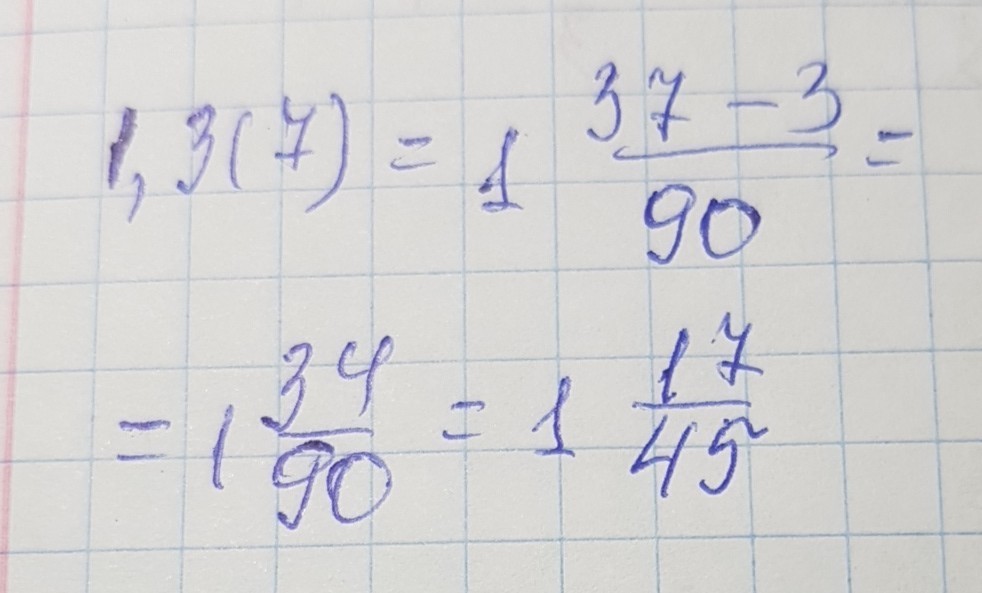 1,3(7) = 1 37-3/90 =
= 1 34/90 = 1 17/45